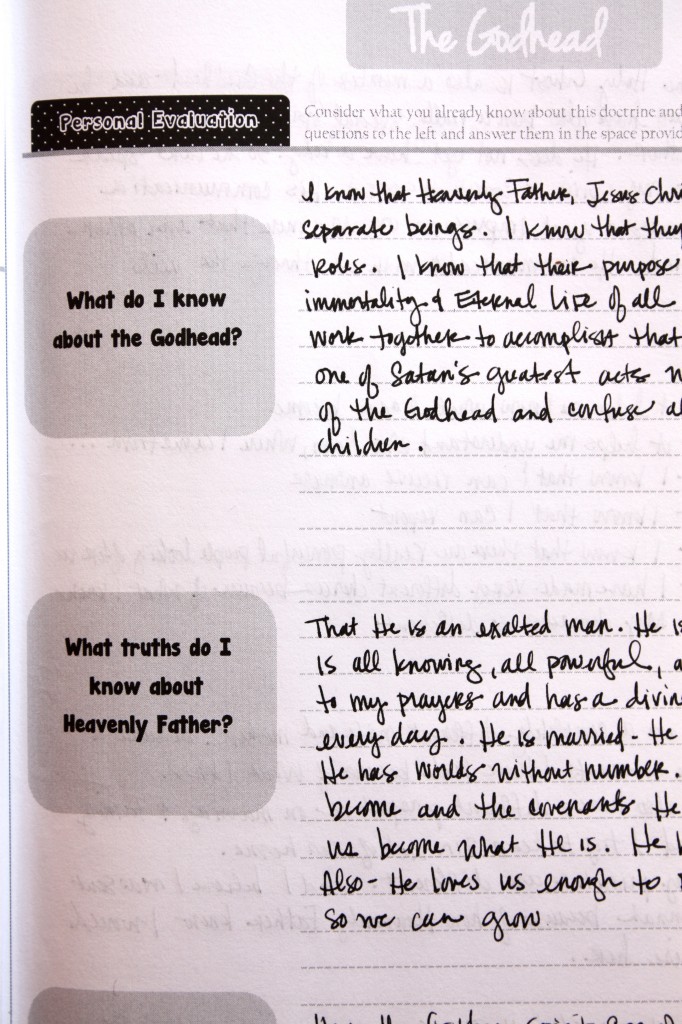 The Godhead
Personal Evaluation
Consider what you already know about this doctrine and
questions to the left and answer them in the space provid
What do I know
about the Godhead?
I know that Heavenly Father, Jesus Chri
separate beings. I know that they
Roles. I know that their purpose
immortality & Eternal Life of all
work together to accomplish that
one of Satan's greatest acts
of the Godhead and confuse al
children.
What truths do I
know about
Heavenly Father?
That He is an exalted man. He is
Is all knowing, all powerful, a
to my prayers and has a divin
every day. He is married - He
He has worlds without number.
become and the covenants He
us become what He is. He
Also - He loves us enough to
so we can grow